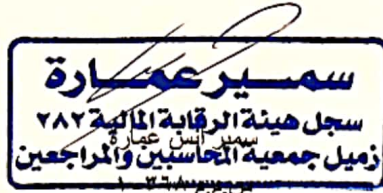 سمير عمارة
سجل هيئة الرقابة المالية ٢٨٢
سمير أنس عمارة
زميل جمعية المحاسبين والمراجعين